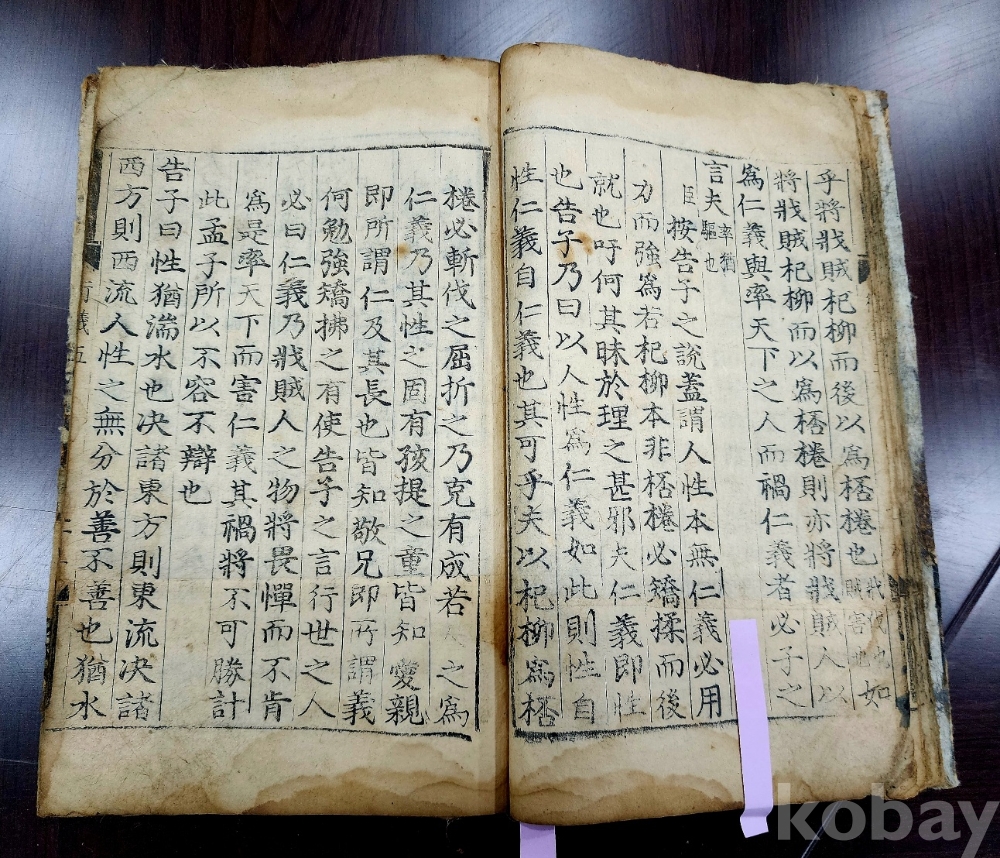 乎將戕賊杞柳而後以爲桮棬也戕賊害也如
將戕賊杞柳而以爲桮棬則亦將戕賊人以
爲仁義與率天下之人而禍仁義者必子之
言夫率猶驅也
臣按告子之說蓋謂人性本無仁義必用
力而強爲若杞柳本非桮棬必矯揉而後
就也吁何其昧於理之甚邪夫仁義即性
也告子乃曰以人性爲仁義如此則性自
性仁義自仁義也其可乎夫以杞柳爲桮
棬必斬伐之屈折之乃克有成若人之爲
仁義乃其性之固有孩提之童皆知愛親
即所謂仁及其長也皆知敬兄即所謂義
何勉強矯拂之有使告子之言行世之人
必曰仁義乃戕賊人之物將畏憚而不肯
爲是率天下而害仁義其禍將不可勝計
此孟子所以不容不辯也
告子曰性猶湍水也决諸東方則東流决諸
西方則西流人性之無分於善不善也猶水
衍義五
kobay